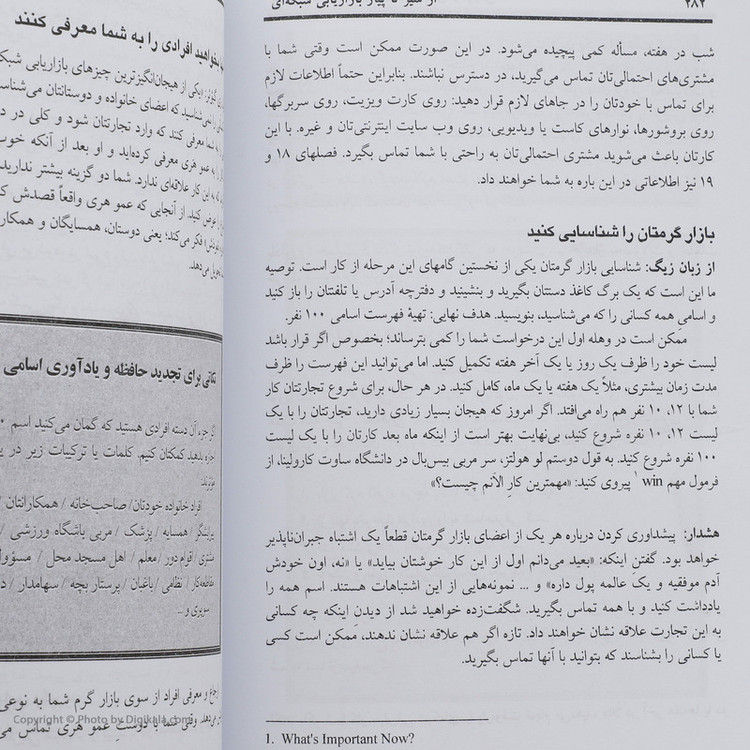 ۲۸۲
از صفر تا بیکار بازاریابی شبکه‌ای
شب در هفته، مسأله کمی پیچیده می‌شود. در این صورت ممکن است وقتی شما با
مشتری‌های احتمالی‌تان تماس می‌گیرید، در دسترس نباشند. بنابراین حتماً اطلاعات لازم
برای تماس با خودتان را در جاهای لازم قرار دهید: روی کارت ویزیت، روی سربرگها،
روی بروشورها، نوارهای کاست یا ویدیویی، روی وب سایت اینترنتی‌تان و غیره. با این
کارتان باعث می‌شوید مشتری احتمالی‌تان به راحتی با شما تماس بگیرد. فصلهای ۱۸ و
۱۹ نیز اطلاعاتی در این باره به شما خواهند داد.
بازار گرمتان را شناسایی کنید
از زبان زیگ: شناسایی بازار گرمتان یکی از نخستین گامهای این مرحله از کار است. توصیه
ما این است که یک برگ کاغذ دستتان بگیرید و بنشینید و دفترچه آدرس یا تلفنتان را باز کنید
و اسامی همه کسانی را که می‌شناسید، بنویسید. هدف نهایی: تهیهٔ فهرست اسامی ۱۰۰ نفر.
ممکن است در وهله اول این درخواست شما را کمی بترساند؛ بخصوص اگر قرار باشد
لیست خود را ظرف یک روز یا یک آخر هفته تکمیل کنید. اما می‌توانید این فهرست را ظرف
مدت زمان بیشتری، مثلاً یک هفته یا یک ماه، کامل کنید. در هر حال، برای شروع تجارتتان کار
شما با ۱۲، ۱۰ نفر هم راه می‌افتد. اگر امروز که هیجان بسیار زیادی دارید، تجارتتان را با یک
لیست ۱۲، ۱۰ نفره شروع کنید، بی‌نهایت بهتر است از اینکه ماه بعد کارتان را با یک لیست
۱۰۰ نفره شروع کنید. به قول دوستم لو هولتز، سر مربی بیس‌بال در دانشگاه ساوت کارولینا، از
فرمول مهم win ۱ پیروی کنید: «مهمترین کارِ الآنم چیست؟»
هشدار: پیشداوری کردن درباره هر یک از اعضای بازار گرمتان قطعاً یک اشتباه جبران‌ناپذیر
خواهد بود. گفتن اینکه: «بعید می‌دانم اول از این کار خوشتان بیاید» یا «نه، اون خودش
آدم موفقیه و یک عالمه پول داره» و ... نمونه‌هایی از این اشتباهات هستند. اسم همه را
یادداشت کنید و با همه تماس بگیرید. شگفت‌زده خواهید شد از دیدن اینکه چه کسانی
به این تجارت علاقه نشان خواهند داد. تازه اگر هم علاقه نشان ندهند، ممکن است کسی
یا کسانی را بشناسند که بتوانید با آنها تماس بگیرید.
1. What's Important Now?
بخواهید افرادی را به شما معرفی کنند
یکی از هیجان‌انگیزترین چیزهای بازاریابی شبکه
می‌شناسید که اعضای خانواده و دوستانتان می‌شناسند
به شما معرفی کنند که وارد تجارتتان شود و کلی در د
به عمو هری معرفی کرده‌اید و او بعد از آنکه خوب
که به این کار علاقه‌ای ندارد. شما دو گزینه بیشتر ندارید
عوض کنید. از آنجایی که عمو هری واقعاً قصدش ک
فکر می‌کند؛ یعنی دوستان، همسایگان و همکار
تحویل می‌دهد.
نکاتی برای تجدید حافظه و یادآوری اسامی
اگر جزء آن دسته افرادی هستید که گمان می‌کنید اسم
اجازه بدهید کمکتان کنیم. کلمات یا ترکیبات زیر در
افراد خانواده خودتان / صاحب‌خانه / همکارانتان /
/ همسایه / پزشک / مربی باشگاه ورزشی /
مشتری / اقوام دور / معلم / اهل مسجد محل /
/ نظامی / باغبان / پرستار بچه / سهامدار /
و ...
و معرفی افراد از سوی بازار گرم شما به نوعی
وقتی شما با دوستِ عمو هری تماس می
Copyright © Photo by Digikala.com